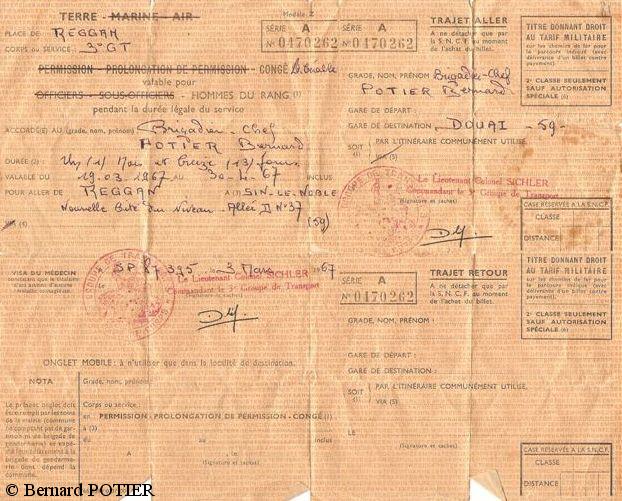 TERRE - MARINE - AIR
Modèle 2
PLACE DE REGGAN
CORPS ou SERVICE : 3° GT
SÉRIE A
N° 0170262
PERMISSION - PROLONGATION DE PERMISSION - CONGÉ
valable pour
OFFICIERS - SOUS-OFFICIERS - HOMMES DU RANG (1)
pendant la durée légale du service
ACCORDÉ(E) AU (grade, nom, prénom) Brigadier-Chef
POTIER Bernard
DURÉE (2) : Un (1) Mois et treize (13) jours
VALABLE DU 19-03-1967 AU 30-4-67 INCLUS
POUR ALLER DE REGGAN A (3) SIN-LE-NOBLE
Nouvelle Cité du Niveau - Allée D N° 37
(59)
VIA (4)
VISA DU MÉDECIN
Le SP 87 395 - 3 Mars 1967
Le Lieutenant Colonel SICHLER
Commandant le 3° Groupe de Transport
(Signature et cachet)
GROUPE DE TRANSPORT
SÉRIE A
N° 0170262
TRAJET ALLER
A ne détacher que par
la S.N.C.F. au moment
de l'achat du billet.
GRADE, NOM, PRÉNOM Brigadier-Chef
POTIER Bernard
GARE DE DÉPART :
GARE DE DESTINATION : DOUAI -59-
SOIT (1)
PAR L'ITINÉRAIRE COMMUNÉMENT UTILISÉ,
VIA (5)
Le Lieutenant Colonel SICHLER
Commandant le 3° Groupe de Transport
(Signature et cachet)
TITRE DONNANT DROIT
AU TARIF MILITAIRE
sur les chemins de fer pour
le parcours indiqué (avec
délivrance d'un billet contre
paiement).
2e CLASSE SEULEMENT
SAUF AUTORISATION
SPÉCIALE (6)
CASE RÉSERVÉE A LA S.N.C.F.
CLASSE
DISTANCE
SÉRIE A
N° 0170262
TRAJET RETOUR
A ne détacher que par
la S.N.C.F. au moment
de l'achat du billet.
GRADE, NOM, PRÉNOM :
GARE DE DÉPART :
GARE DE DESTINATION :
SOIT (1)
PAR L'ITINÉRAIRE COMMUNÉMENT UTILISÉ,
VIA (5)
LE
(Signature et cachet)
TITRE DONNANT DROIT
AU TARIF MILITAIRE
sur les chemins de fer pour
le parcours indiqué (avec
délivrance d'un billet contre
paiement).
2e CLASSE SEULEMENT
SAUF AUTORISATION
SPÉCIALE (6)
CASE RÉSERVÉE A LA S.N.C.F.
CLASSE
DISTANCE
ONGLET MOBILE : à n'utiliser que dans la localité de destination.
NOTA
Le présent onglet doit
être rempli par les soins
de la mairie (commune
ne comptant pas de garnison
ni de brigade de
gendarmerie) et expédié
à la brigade de gendarmerie
dont dépend la
commune.
Grade, nom, prénom :
Corps ou service :
en PERMISSION - PROLONGATION DE PERMISSION - CONGÉ (1)
à (3)
du au inclus
A le
(Signature et cachet)
© Bernard POTIER